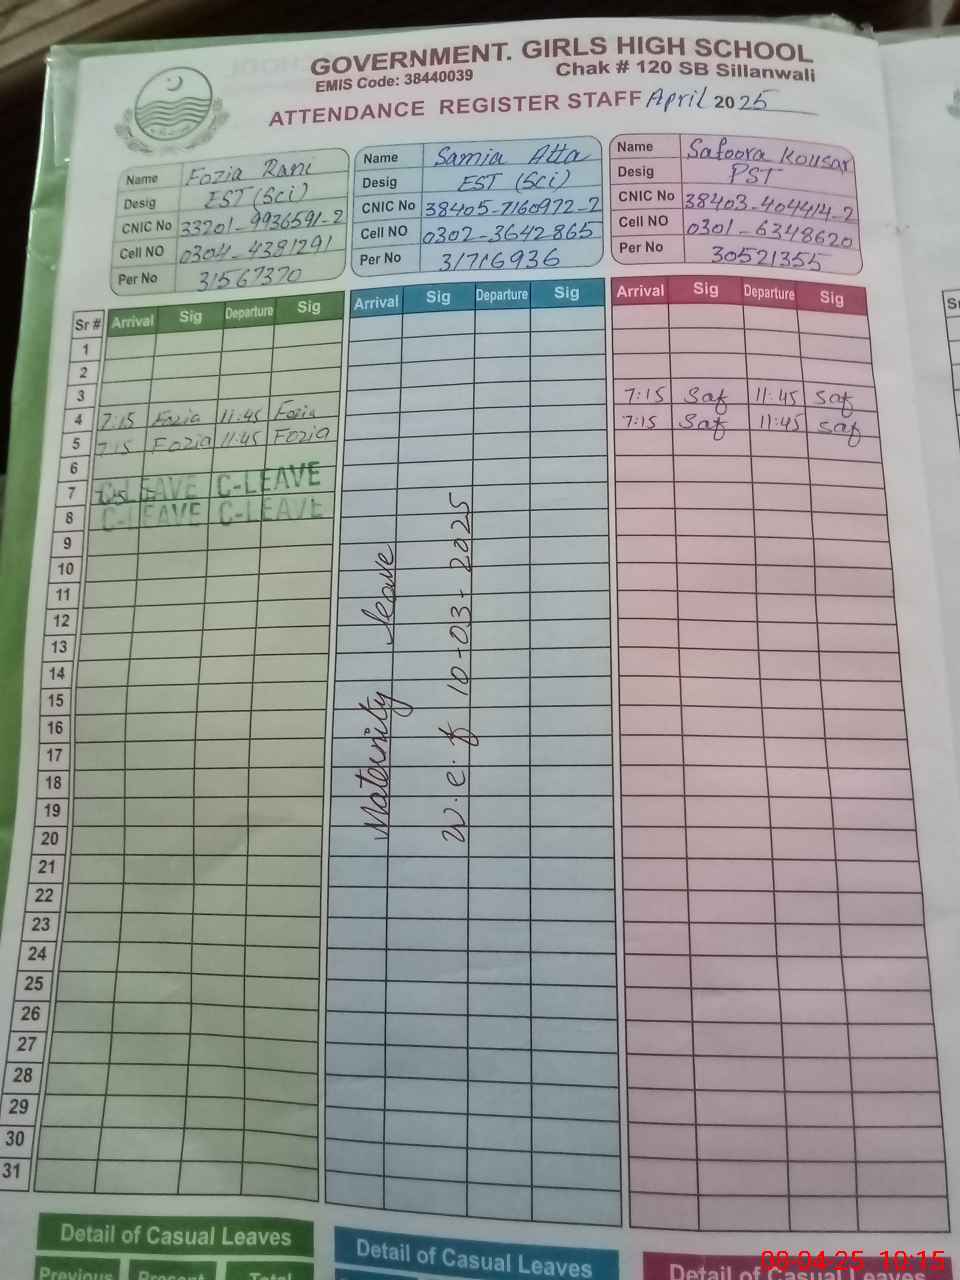 GOVERNMENT. GIRLS HIGH SCHOOL
EMIS Code: 38440039 Chak # 120 SB Sillanwali
ATTENDANCE REGISTER STAFF April 2025
Name Fozia Rani
Desig EST (Sci)
CNIC No 33201-9936591-2
Cell NO 0304-4381291
Per No 31567370
Name Samia Atta
Desig EST (Sci)
CNIC No 38405-7160972-2
Cell NO 0302-3642865
Per No 31716936
Name Safoora Kousar
Desig PST
CNIC No 38403-404414-2
Cell NO 0301-6348620
Per No 30521355
Sr # Arrival Sig Departure Sig Arrival Sig Departure Sig Arrival Sig Departure Sig
1
2
3
4 7:15 Fozia 11:45 Fozia 7:15 Saf 11:45 Saf
5 7:15 Fozia 11:45 Fozia 7:15 Saf 11:45 Saf
6
7 C-LEAVE C-LEAVE
8 C-LEAVE C-LEAVE
9
10
11
12
13
14
15
16
17
18
19
20
21
22
23
24
25
26
27
28
29
30
31
Maternity leave
w.e.f 10-03-2025
Detail of Casual Leaves
Previous Present Total
Detail of Casual Leaves
Detail of Casual Leaves
08-04-25 10:15